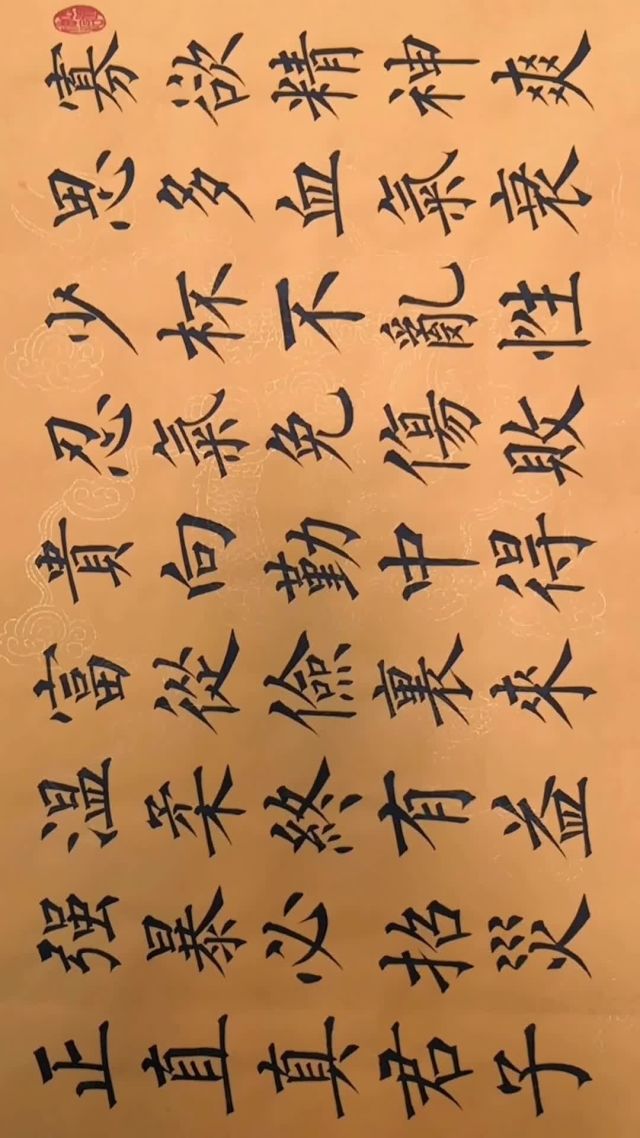 寡欲精神爽
思多血氣衰
少杯不亂性
忍氣免傷敗
貴向勤中得
富從儉裏來
温柔終有益
强暴必招災
正直真君子